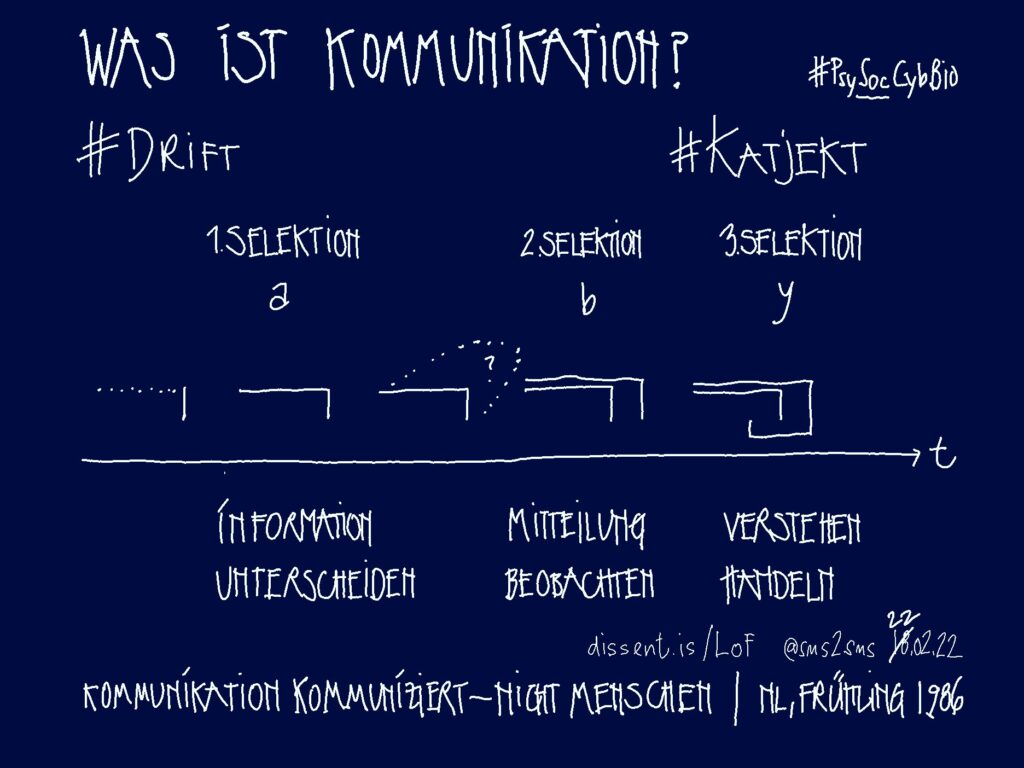 WAS IST KOMMUNIKATION?
#PsySocCybBio
#DRIFT
#KATJEKT
1. SELEKTION
2. SELEKTION
3. SELEKTION
a
b
y
?
t
INFORMATION
MITTEILUNG
VERSTEHEN
UNTERSCHEIDEN
BEOBACHTEN
HANDELN
22
dissent.is/LoF @sms2sms 18.02.22
KOMMUNIKATION KOMMUNIZIERT – NICHT MENSCHEN | NL, FRÜHLING 1986